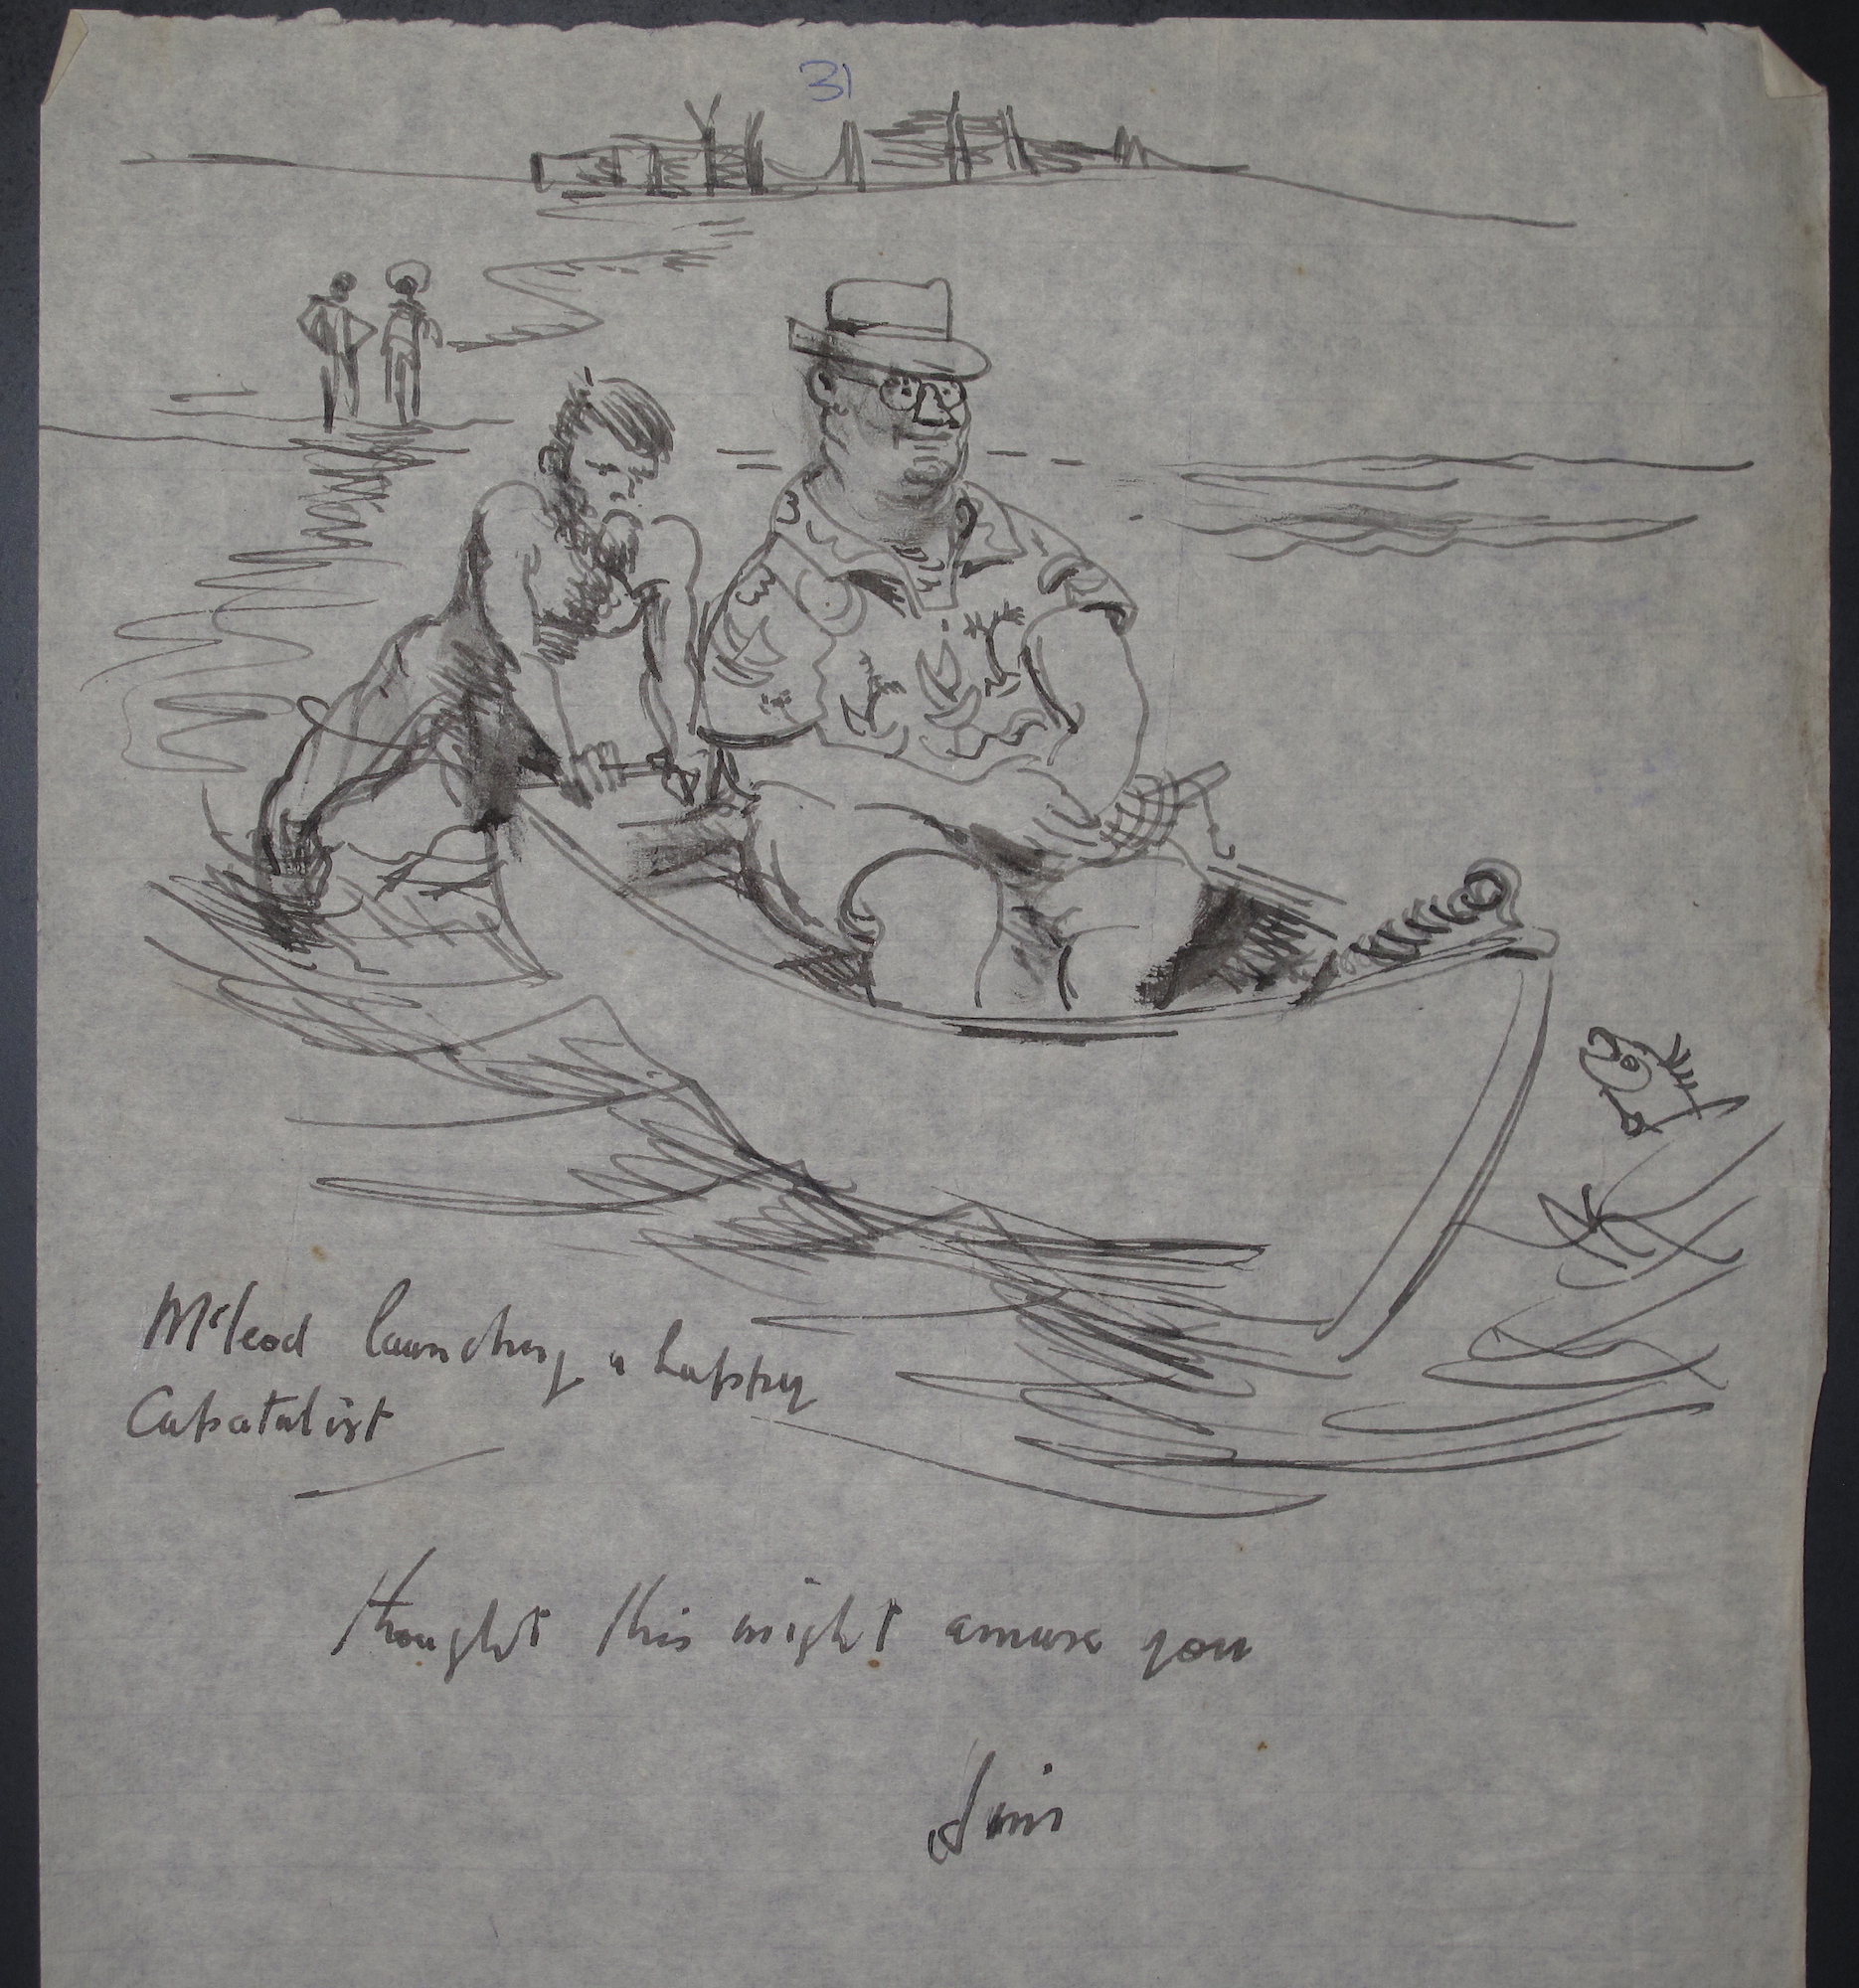 31
McLeod launching a happy
Capatalist
thought this might amuse you